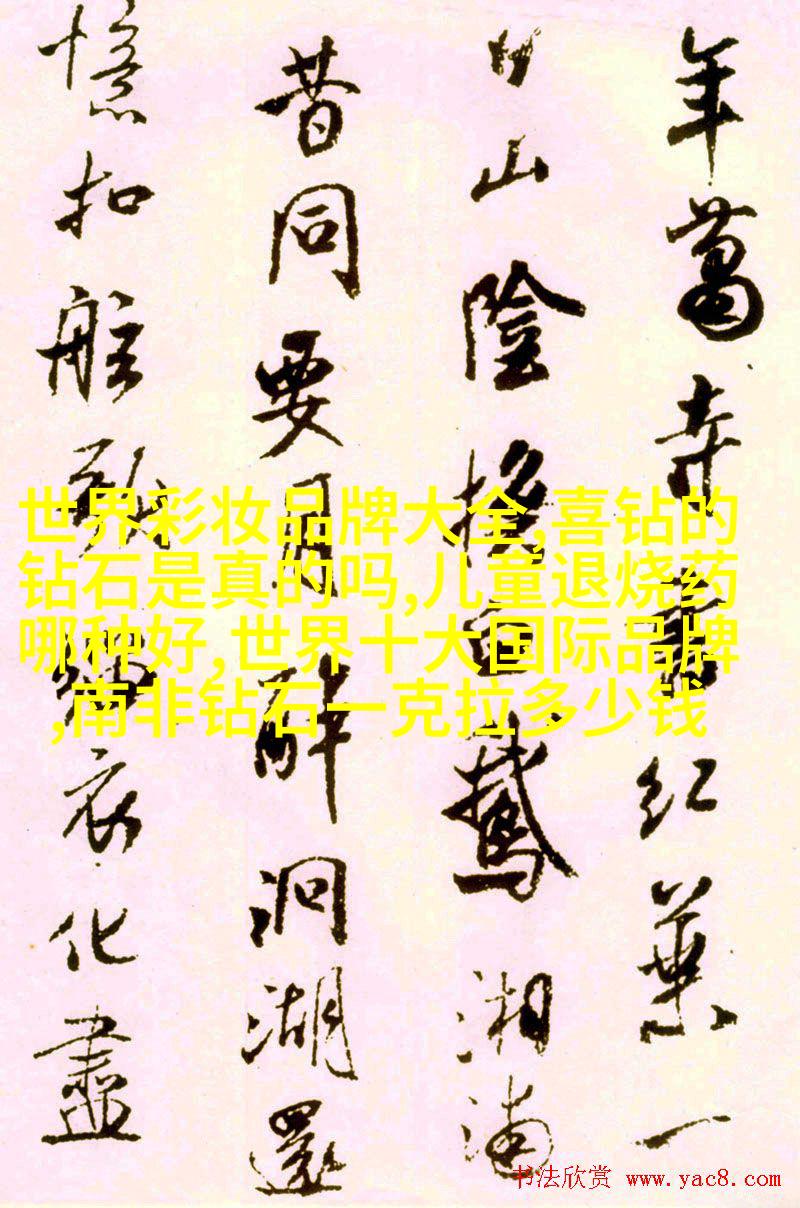 年蕭寺書紅葉一
日山陰換白鵞湘浦
昔同要月醉洞湖還
憶扣舷歌緇衣化盡
世界彩妆品牌大全,喜钻的
钻石是真的吗,儿童退烧药
哪种好,世界十大国际品牌
,南非钻石一克拉多少钱
书法欣赏 www.yac8.com